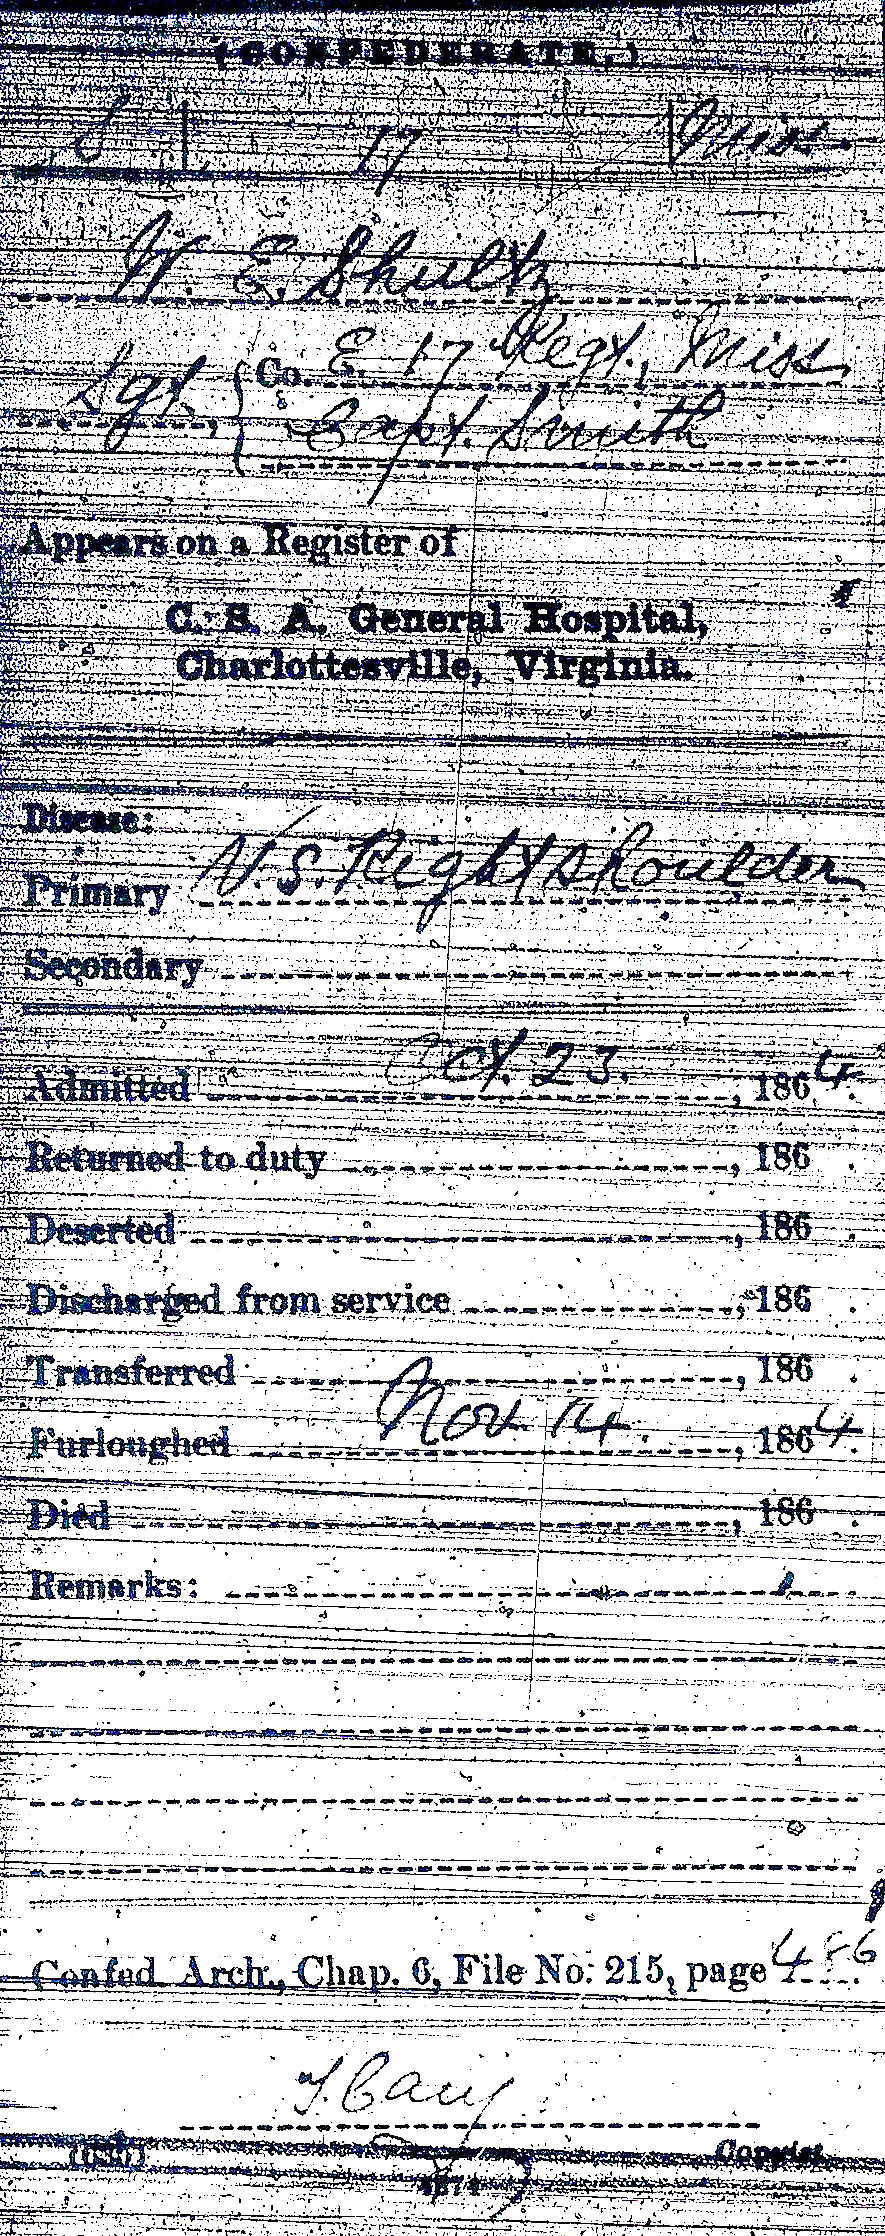 (CONFEDERATE.)
S 17 Miss.
W. E. Shultz
Sgt, Co. E. 17 Regt., Miss
Capt. Smith
Appears on a Register of
C. S. A. General Hospital,
Charlottesville, Virginia.
Disease:
Primary V. S. Right shoulder
Secondary
Admitted Oct. 23. , 1864.
Returned to duty , 186 .
Deserted , 186 .
Discharged from service , 186 .
Transferred , 186 .
Furloughed Nov. 14. , 1864.
Died , 186 .
Remarks:
Confed. Arch., Chap. 6, File No. 215, page 486
Copyist.